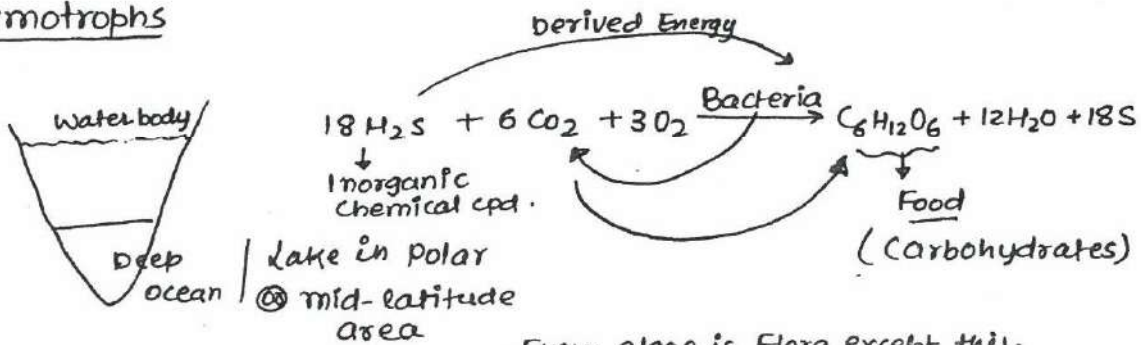 motrophs
Derived Energy
Water body
18 H₂S + 6 CO₂ + 3O₂ Bacteria → C₆H₁₂O₆ + 12H₂O + 18S
Inorganic
chemical cpd.
Food
(Carbohydrates)
Deep
ocean
Lake in polar
or mid-latitude
area